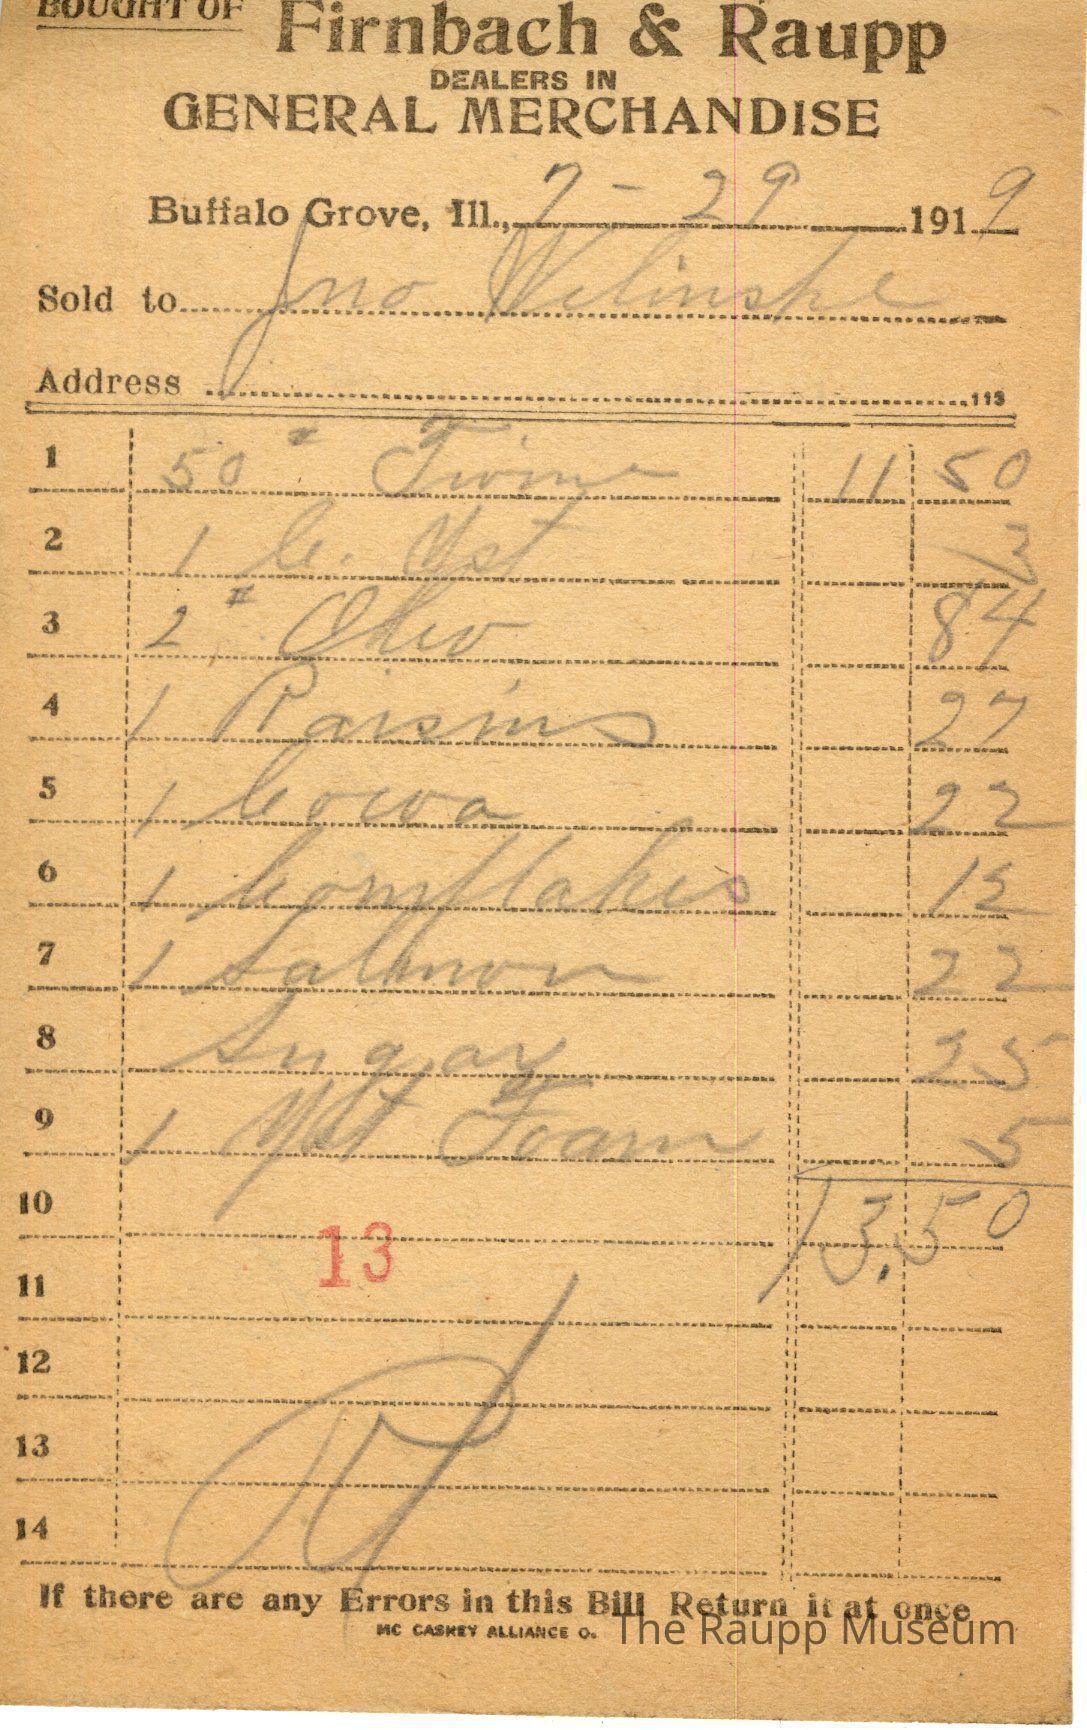 BOUGHT OF
Firnbach & Raupp
DEALERS IN
GENERAL MERCHANDISE
Buffalo Grove, Ill., 7 - 29 1919
Sold to Jno Welinske
Address
113
1 50 # Twine 11 50
2 1 C. Yst 3
3 2 # Oleo 84
4 1 Raisins 27
5 1 Cocoa 22
6 1 Cornflakes 15
7 1 Salmon 22
8 Sugar 25
9 1 Yst Foam 5
10 13.50
13
11
12
13
14
R
If there are any Errors in this Bill Return it at once
MC CASKEY ALLIANCE O.
The Raupp Museum